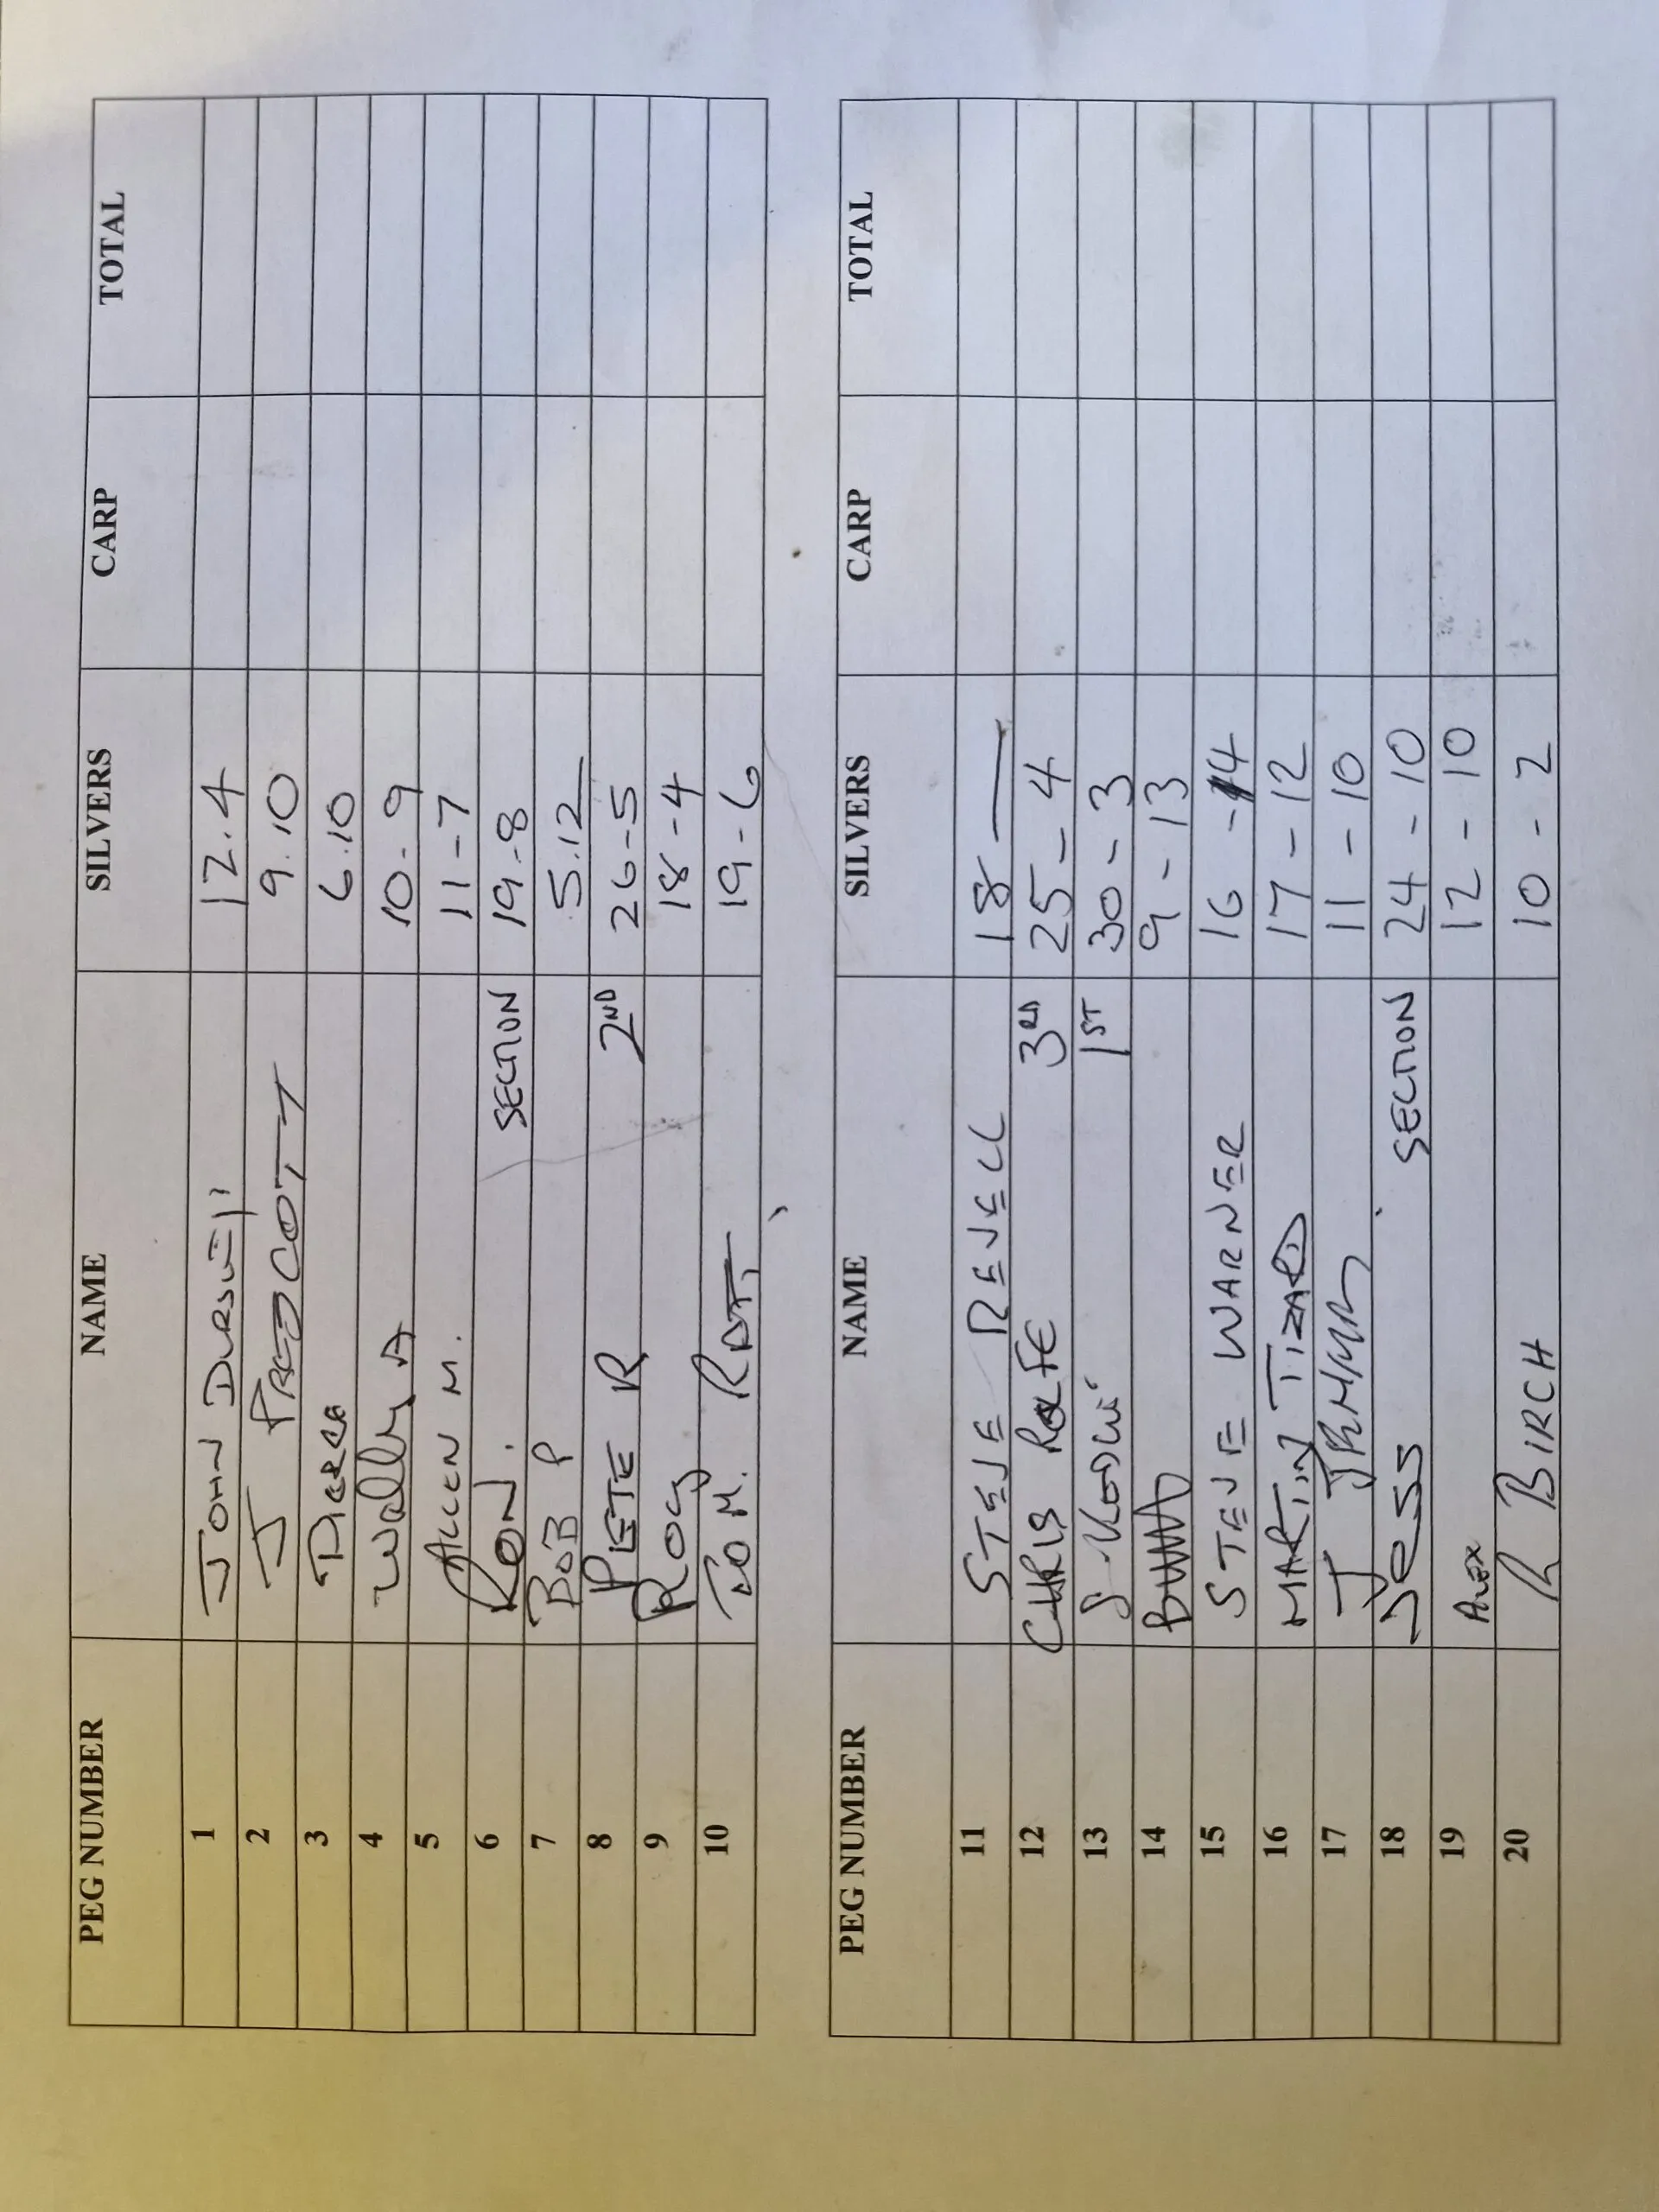 PEG NUMBER NAME SILVERS CARP TOTAL
1 JOHN 12.4
2 J PRESCOTT 9.10
3 6.10
4 Wally A 10-9
5 ALLEN M. 11-7
6 RON. SECTION 19-8
7 BOB P 5.12
8 PETE R 2ND 26-5
9 ROY 18-4
10 TOM. 19-6
PEG NUMBER NAME SILVERS CARP TOTAL
11 STEVE REVELL 18 —
12 CHRIS ROLFE 3RD 25-4
13 S. 1ST 30-3
14 9-13
15 STEVE WARNER 16-4
16 MARTIN TIZARD 17-12
17 J 11-10
18 Jess SECTION 24-10
19 ALEX 12-10
20 R BIRCH 10-2